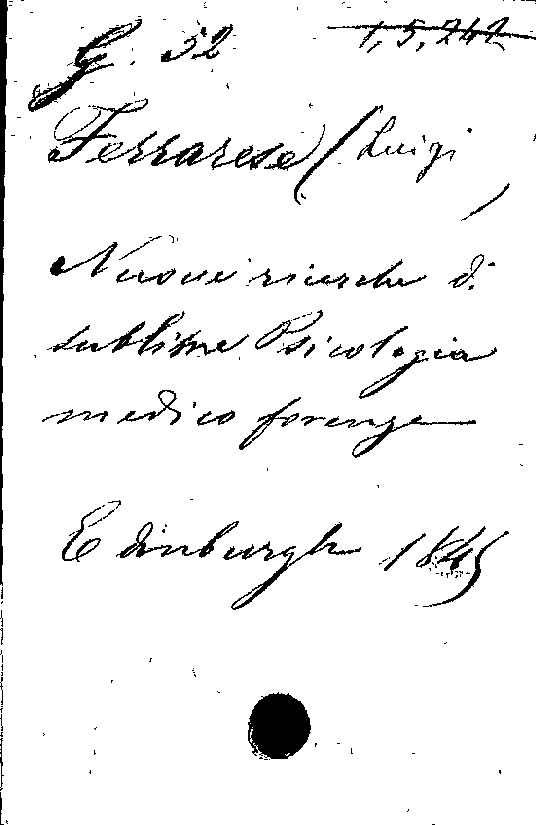 G. 52 1,5,242
Ferrarese (Luigi)
Nuove ricerche di
sublime Psicologia
medico forense
Edinburgh 1845